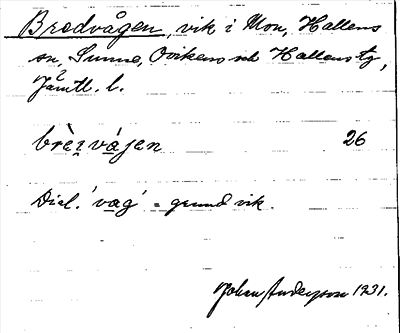 Bredvågen, vik i Mon, Hallens
sn, Sunne, Ovikens och Hallens tg,
Jämtl. l.
brèzvájen 26
Dial. 'vag' = grund vik.
Johan Anderson 1931.